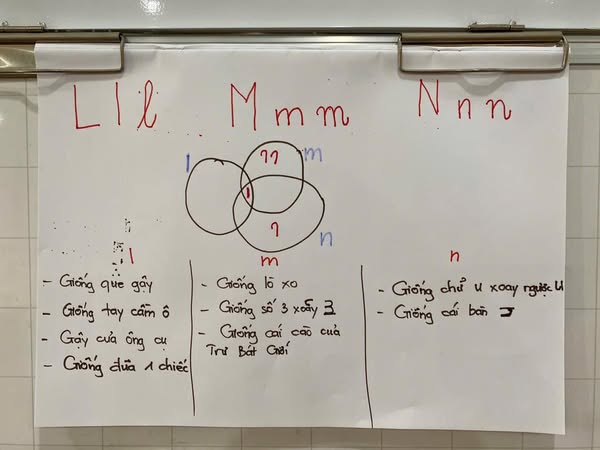 L l l
M m m
N n n
l
11
m
1
1
n
l
- Giống que gậy
- Giống tay cầm ô
- Gậy của ông cụ
- Giống đũa 1 chiếc
m
- Giống lò xo
- Giống số 3 xoay 3
- Giống cái cào của
Trư Bát Giới
n
- Giống chữ u xoay ngược U
- Giống cái bàn